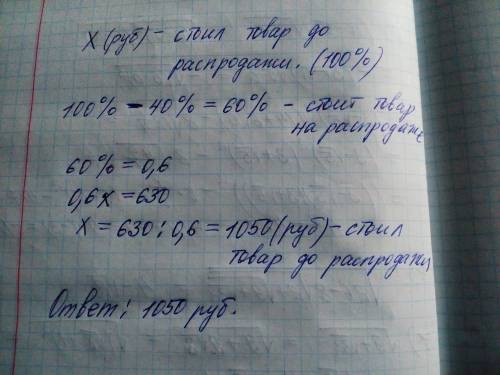 x (руб) - стоил товар до
распродажи. (100%)
100% - 40% = 60% - стоит товар
на распродаже
60% = 0,6
0,6x = 630
x = 630 : 0,6 = 1050 (руб) - стоил
товар до распродажи
Ответ: 1050 руб.